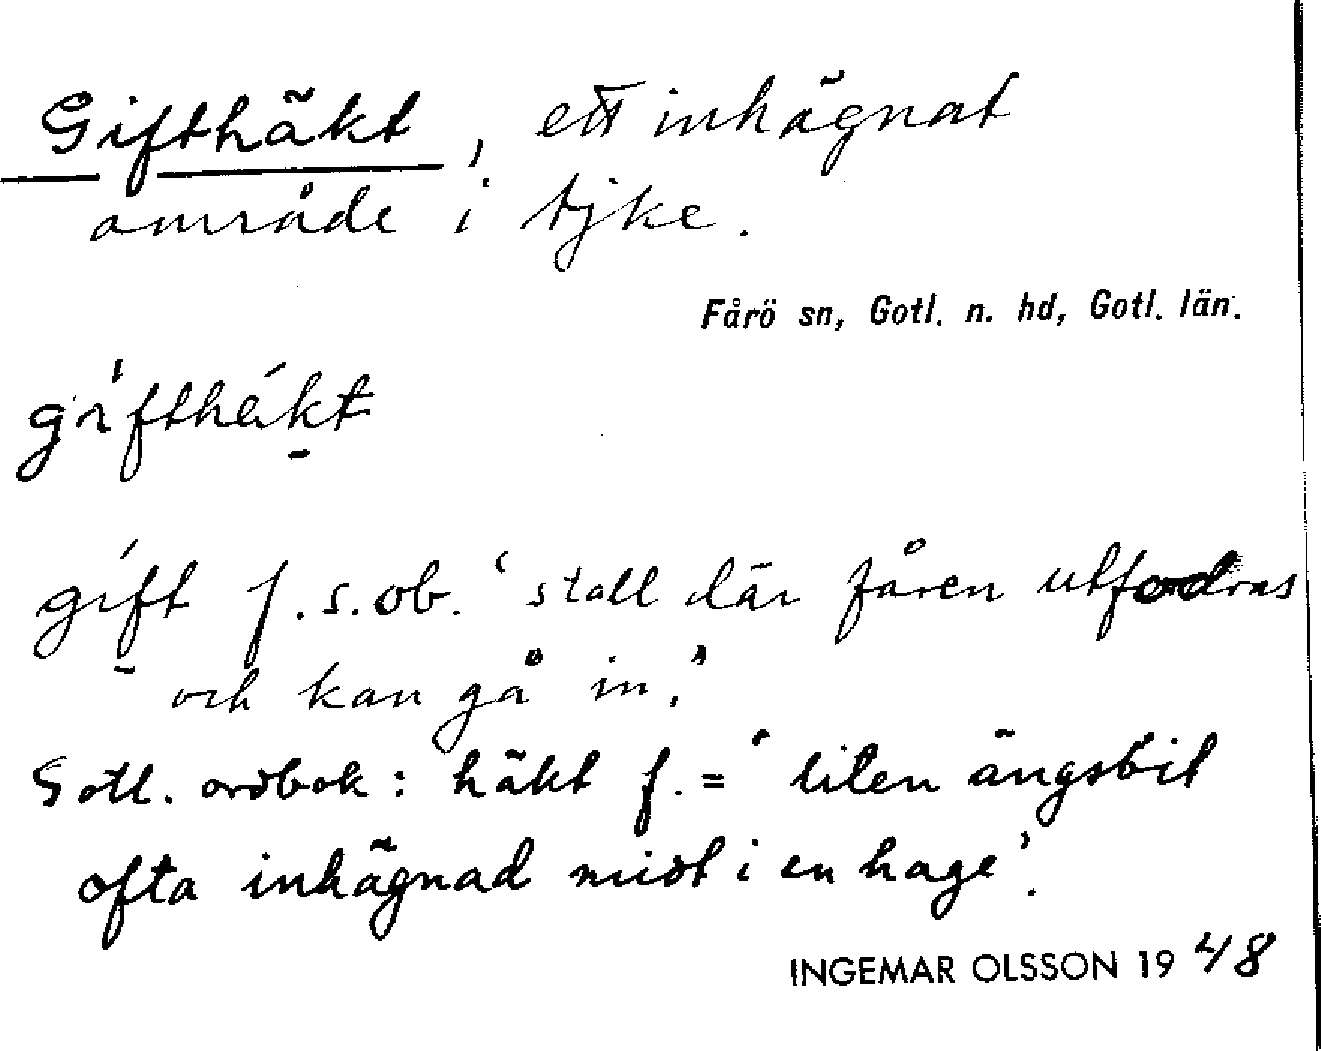 Gifthäkt, ett inhägnat
område i tjke.
Fårö sn, Gotl. n. hd, Gotl. län.
gifthäkt
gift f. s. ob. 'stall där fåren utfodras
och kan gå in.'
Gotl. ordbok: häkt f. = 'liten ängsbit
ofta inhägnad midt i en hage'.
INGEMAR OLSSON 1948